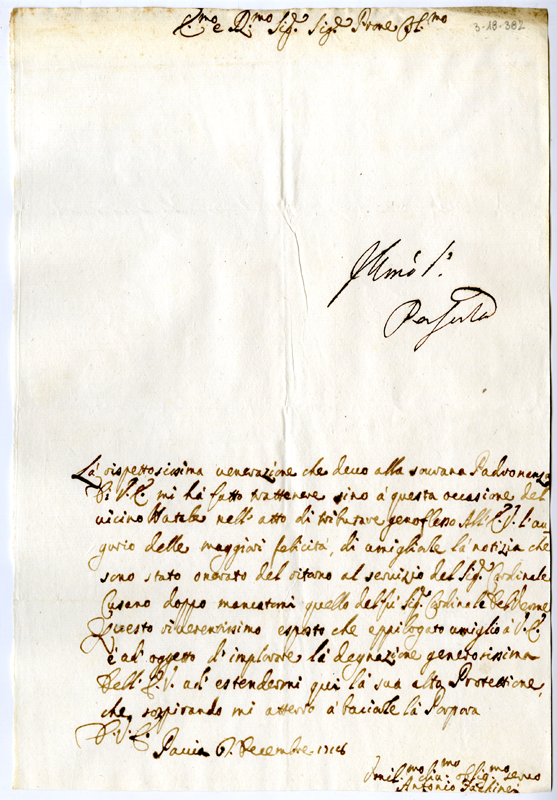 E.mo e R.mo Sig.r Sig.r Prone Col.mo
3-18-382
La rispettosissima venerazione che devo alla sovrana Padronanza
di V.E. mi há fatto trattenere sino á questa occasione del
vicino Natale nell'atto di tributare genoflesso All'E.V. l'au-
gurio delle maggiori felicitá, di umigliale la notizia che
sono stato onorato del ritorno al servizio del Sig.r Cardinale
Cusano doppo mancatomi quello del fú Sig.r Cardinale Del Verme
Questo riverentissimo esposto che eppilogato umiglio á V.E.
é ad oggetto d'implorare la degnazione generosissima
Dell'E.V. ad estendermi quí la sua alta Protettione,
che sospirando mi atterro á baciale la Porpora
D.V.E.
Pavia 6 Decembre 1716
Umil.mo obblig.mo servo
Antonio